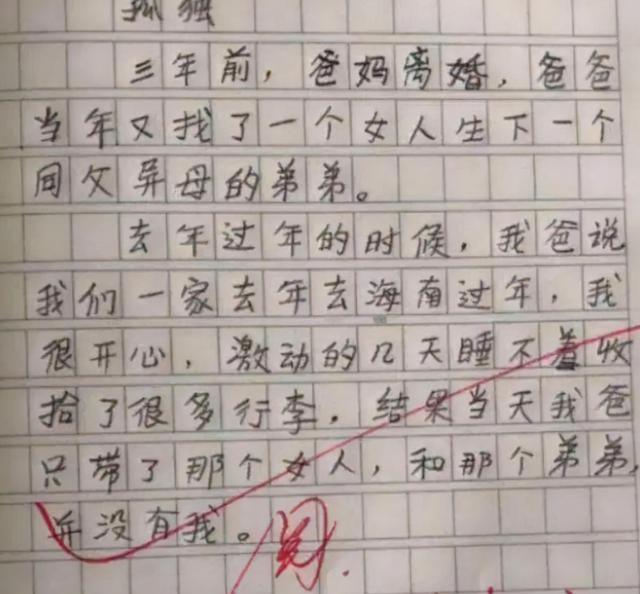 孤独
三年前，爸妈离婚，爸爸
当年又找了一个女人生下一个
同父异母的弟弟。
去年过年的时候，我爸说
我们一家去年去海南过年，我
很开心，激动的几天睡不着收
拾了很多行李，结果当天我爸
只带了那个女人，和那个弟弟，
并没有我。
阅